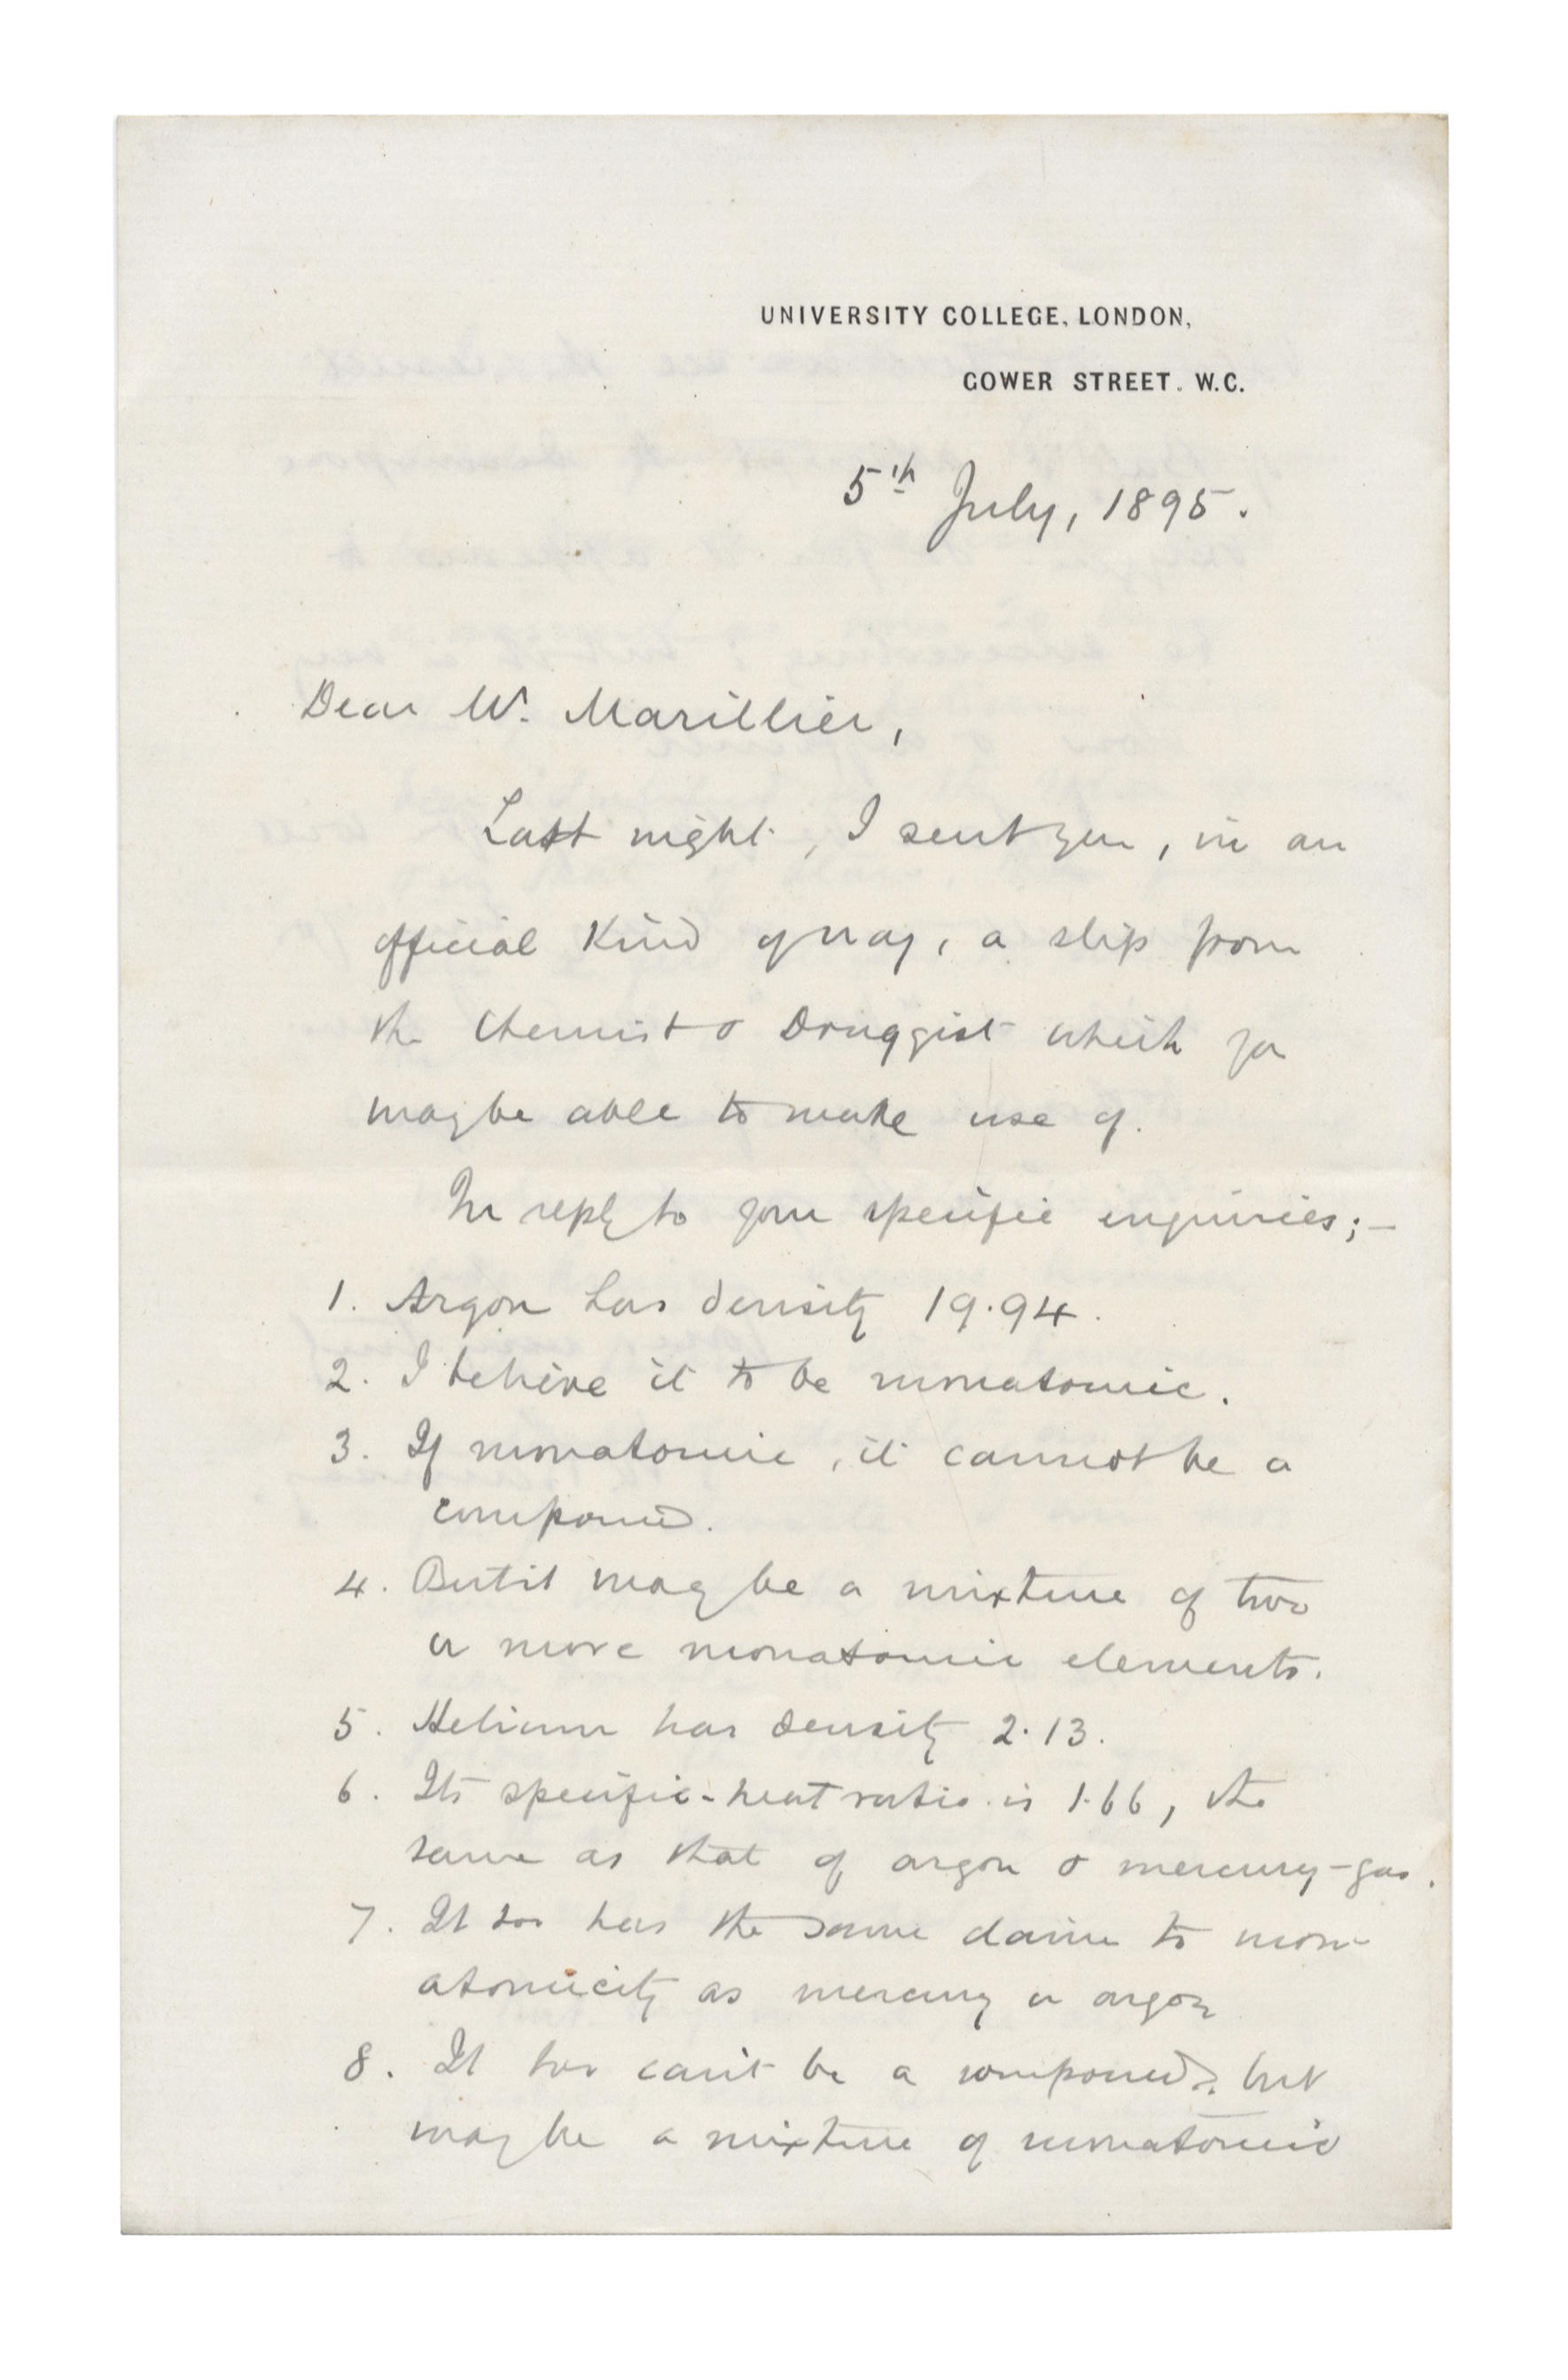 UNIVERSITY COLLEGE, LONDON,
GOWER STREET. W.C.
5th July, 1895.
Dear Mr. Marillier,
Last night, I sent you, in an
official kind of way, a slip from
the Chemist & Druggist which you
may be able to make use of.
In reply to your specific inquiries;—
1. Argon has density 19.94.
2. I believe it to be monatomic.
3. If monatomic, it cannot be a
compound.
4. But it may be a mixture of two
or more monatomic elements.
5. Helium has density 2.13.
6. Its specific-heat ratio is 1.66, the
same as that of argon & mercury-gas.
7. It too has the same claim to mon-
atomicity as mercury or argon
8. It too can't be a compound, but
may be a mixture of monatomic